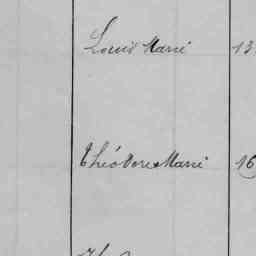 Louis Marie 13
Théodore Marie 16